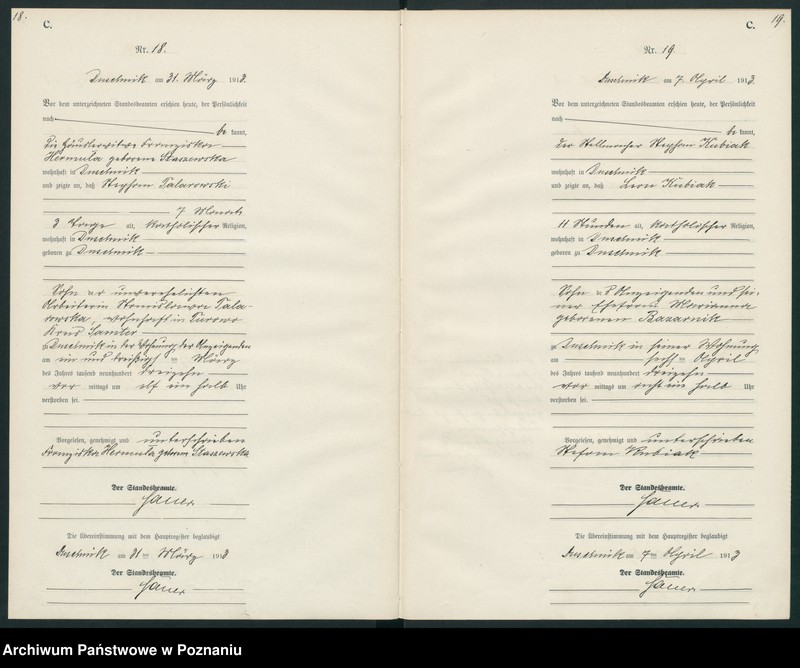 18.
C.
Nr. 18.
Duschnik am 31. März 1913.
Vor dem unterzeichneten Standesbeamten erschien heute, der Persönlichkeit
nach
be kannt,
die Häuslerwitwe Franziska
Hermula geborene Staszewska
wohnhaft in Duschnik
und zeigte an, daß Stephan Talarowski
7 Monate
3 Tage alt, katholischer Religion,
wohnhaft in Duschnik
geboren zu Duschnik
Sohn der unverehelichten
Arbeiterin Stanislawa Tala-
rowska, wohnhaft in
Kreis Samter
zu Duschnik in der Wohnung der Anzeigenden
am ein und dreißigsten März
des Jahres tausend neunhundert dreizehn
vor mittags um elf ein halb Uhr
verstorben sei.
Vorgelesen, genehmigt und unterschrieben
Franziska Hermula geborene Staszewska
Der Standesbeamte.
Die Übereinstimmung mit dem Hauptregister beglaubigt
Duschnik am 31 ten März 1913
Der Standesbeamte.
19.
C.
Nr. 19
Duschnik am 7. April 1913.
Vor dem unterzeichneten Standesbeamten erschien heute, der Persönlichkeit
nach
be kannt,
der Stellmacher Stephan Kubiak
wohnhaft in Duschnik
und zeigte an, daß Leon Kubiak
11 Stunden alt, katholischer Religion,
wohnhaft in Duschnik
geboren zu Duschnik
Sohn des Anzeigenden und sei-
ner Ehefrau Marianna
geborenen Bazarnik
zu Duschnik in seiner Wohnung
am sechsten April
des Jahres tausend neunhundert dreizehn
vor mittags um acht ein halb Uhr
verstorben sei.
Vorgelesen, genehmigt und unterschrieben
Stefan Kubiak
Der Standesbeamte.
Die Übereinstimmung mit dem Hauptregister beglaubigt
Duschnik am 7 ten April 1913
Der Standesbeamte.
Archiwum Państwowe w Poznaniu